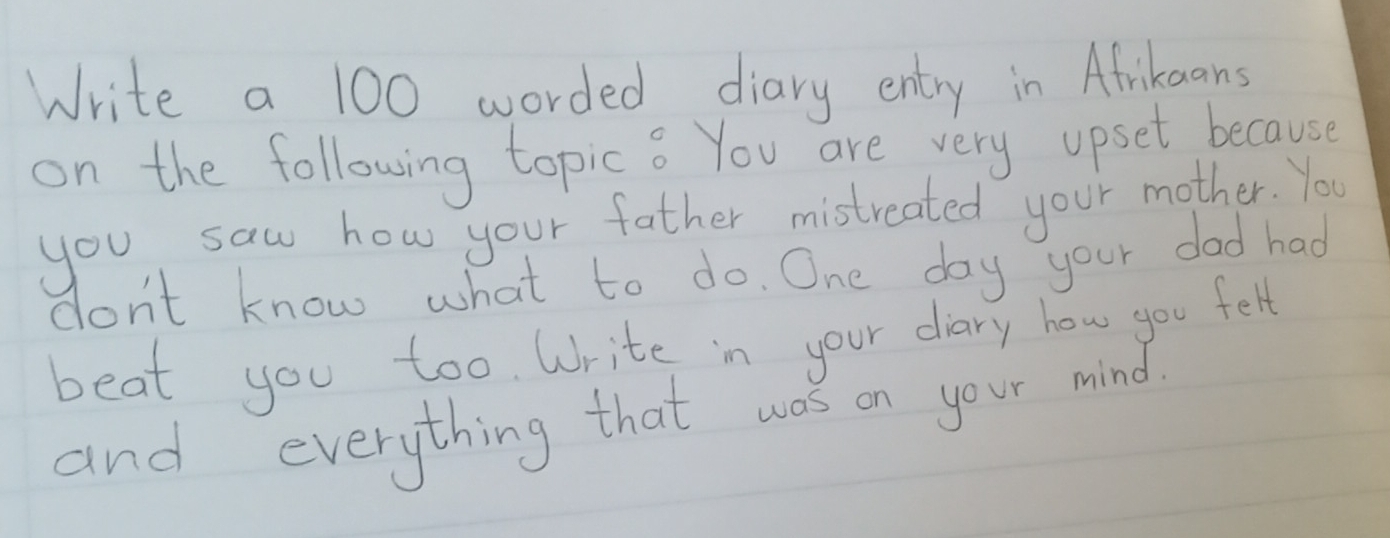 Write a 100 worded diary entry in Afrikaans
on the following topic: You are very upset because
you saw how your father mistreated your mother. You
don't know what to do. One day your dad had
beat you too. Write in your diary how you felt
and everything that was on your mind.